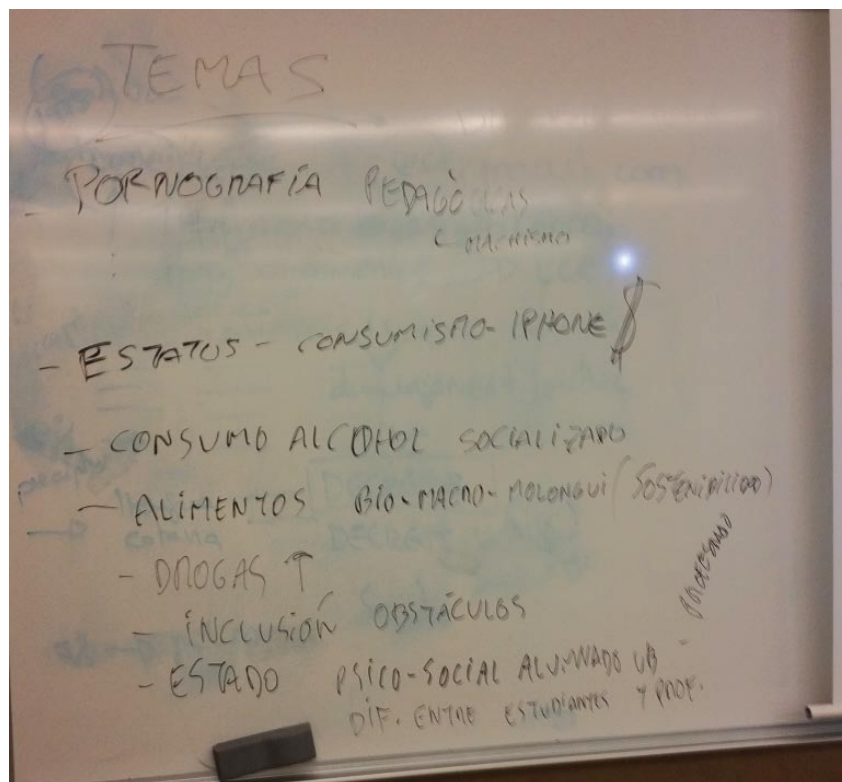 TEMAS
- PORNOGRAFÍA PEDAGÓGICAS
MACHISMO
- ESTATOS - CONSUMISMO - IPHONE $
- CONSUMO ALCOHOL SOCIALIZADO
- ALIMENTOS BIO-MACRO-MOLONGUI (SOSTENIBILIDAD)
- DROGAS ↑
- INCLUSIÓN OBSTÁCULOS
- ESTADO PSICO-SOCIAL ALUMNADO UB - PROFESORADO
DIF. ENTRE ESTUDIANTES Y PROF.